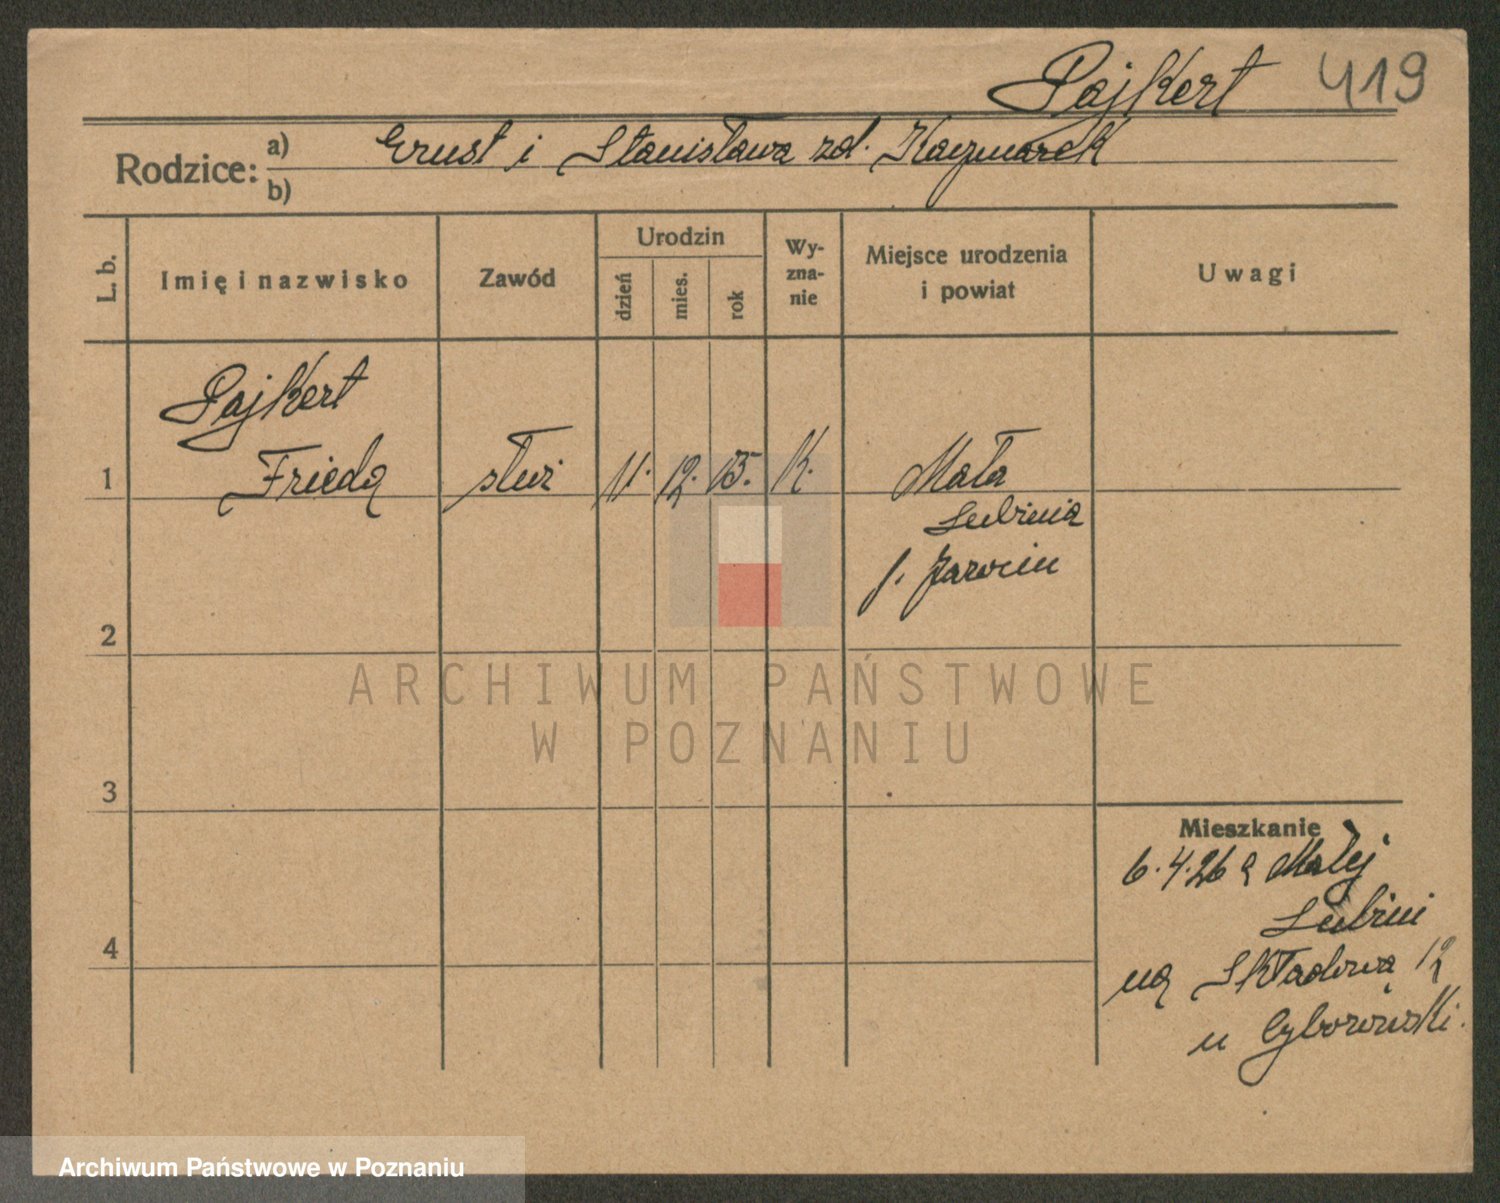 Pajkert 419
Rodzice: a) Ernst i Stanisława zd. Kaczmarek
b)
L. b.
Imię i nazwisko
Zawód
Urodzin
dzień
mies.
rok
Wy-
zna-
nie
Miejsce urodzenia
i powiat
Uwagi
Pajkert
1 Frieda służ 11. 12. 05. K. Mała
Lubinia
p. Jarocin
2
3
4
Mieszkanie
6.4.26 z Małej
Lubini
na Składową 12
u Cyborowski.
ARCHIWUM PAŃSTWOWE
W POZNANIU
Archiwum Państwowe w Poznaniu